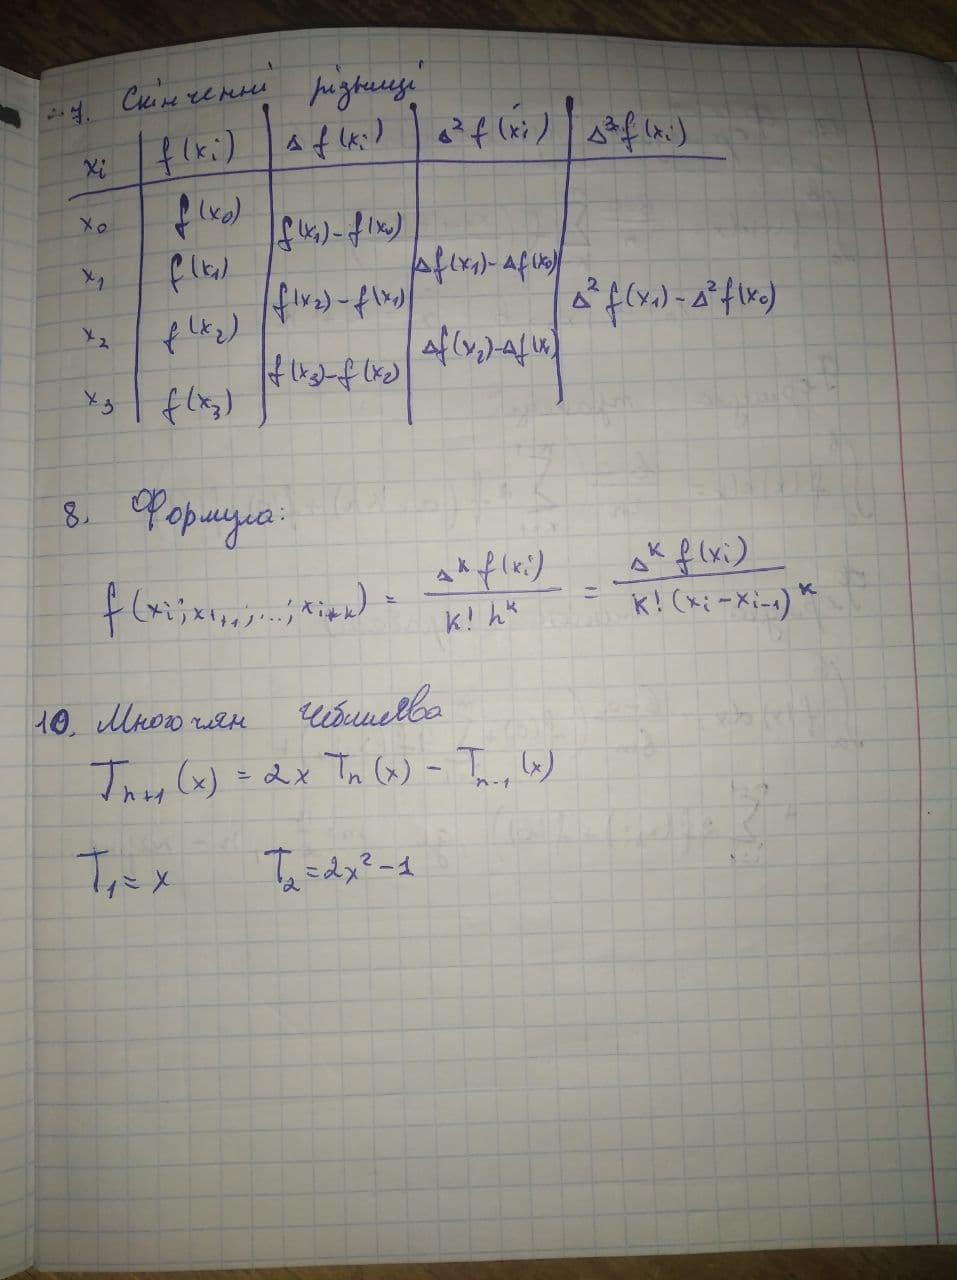 7. Скінченні різниці
xi | f(xi) | Δ f(xi) | Δ² f(xi) | Δ³ f(xi)
x₀ f(x₀)
f(x₁) - f(x₀)
x₁ f(x₁) Δf(x₁) - Δf(x₀)
f(x₂) - f(x₁) Δ² f(x₁) - Δ² f(x₀)
x₂ f(x₂) Δf(x₂) - Δf(x₁)
f(x₃) - f(x₂)
x₃ f(x₃)
8. Формула:
f(xi; xi+1; ...; xi+k) = Δᵏ f(xi) / k! hᵏ = Δᵏ f(xi) / k! (xi - xi-1)ᵏ
10. Многочлен Чебишева
Tn+1 (x) = 2x Tn (x) - Tn-1 (x)
T₁ = x T₂ = 2x² - 1